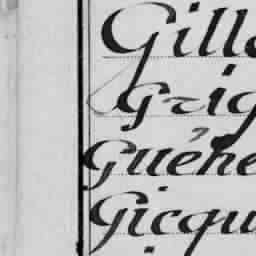 Gill
Grig
Guéhe
Gicqu